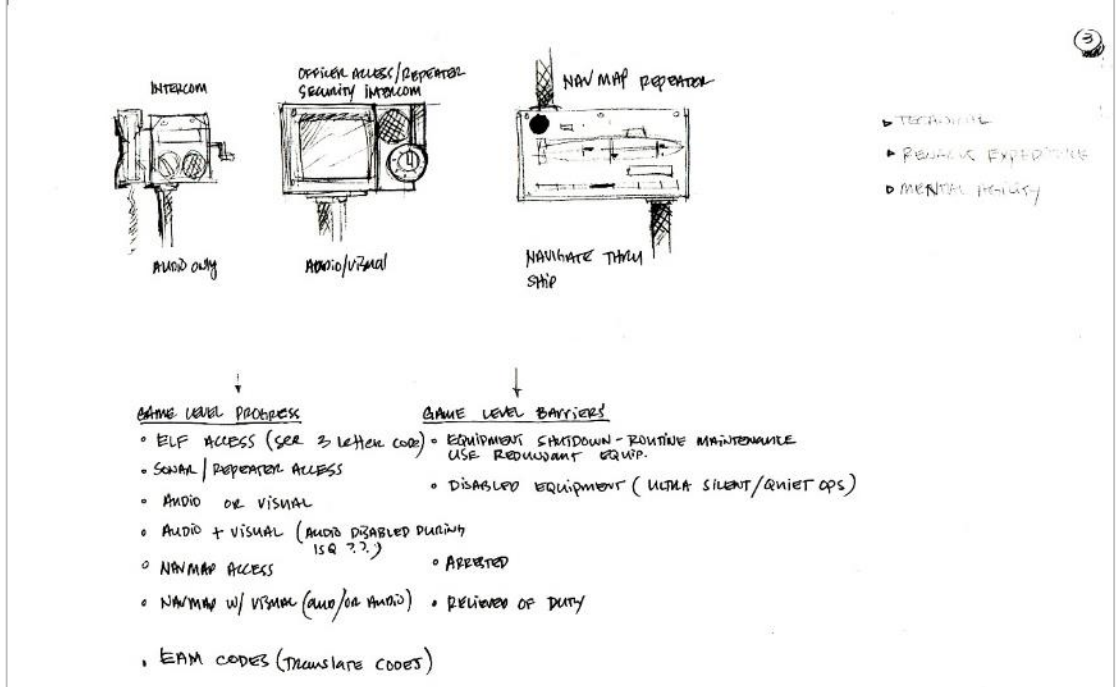 3
INTERCOM
OFFICER ACCESS/REPEATER
SECURITY INTERCOM
NAV MAP REPEATER
▸ TECHNICAL
▸ EXPERTISE
▸ MENTAL AGILITY
AUDIO ONLY
AUDIO/VISUAL
NAVIGATE THRU
SHIP
GAME LEVEL PROGRESS
• ELF ACCESS (SEE 3 LETTER CODE)
• SONAR / REPEATER ACCESS
• AUDIO OR VISUAL
• AUDIO + VISUAL (AUDIO DISABLED DURING
ISQ ??)
• NAVMAP ACCESS
• NAVMAP W/ VISUAL (AND/OR AUDIO)
• EAM CODES (TRANSLATE CODES)
GAME LEVEL BARRIERS
• EQUIPMENT SHUTDOWN - ROUTINE MAINTENANCE
USE REDUNDANT EQUIP.
• DISABLED EQUIPMENT (ULTRA SILENT/QUIET OPS)
• ARRESTED
• RELIEVED OF DUTY